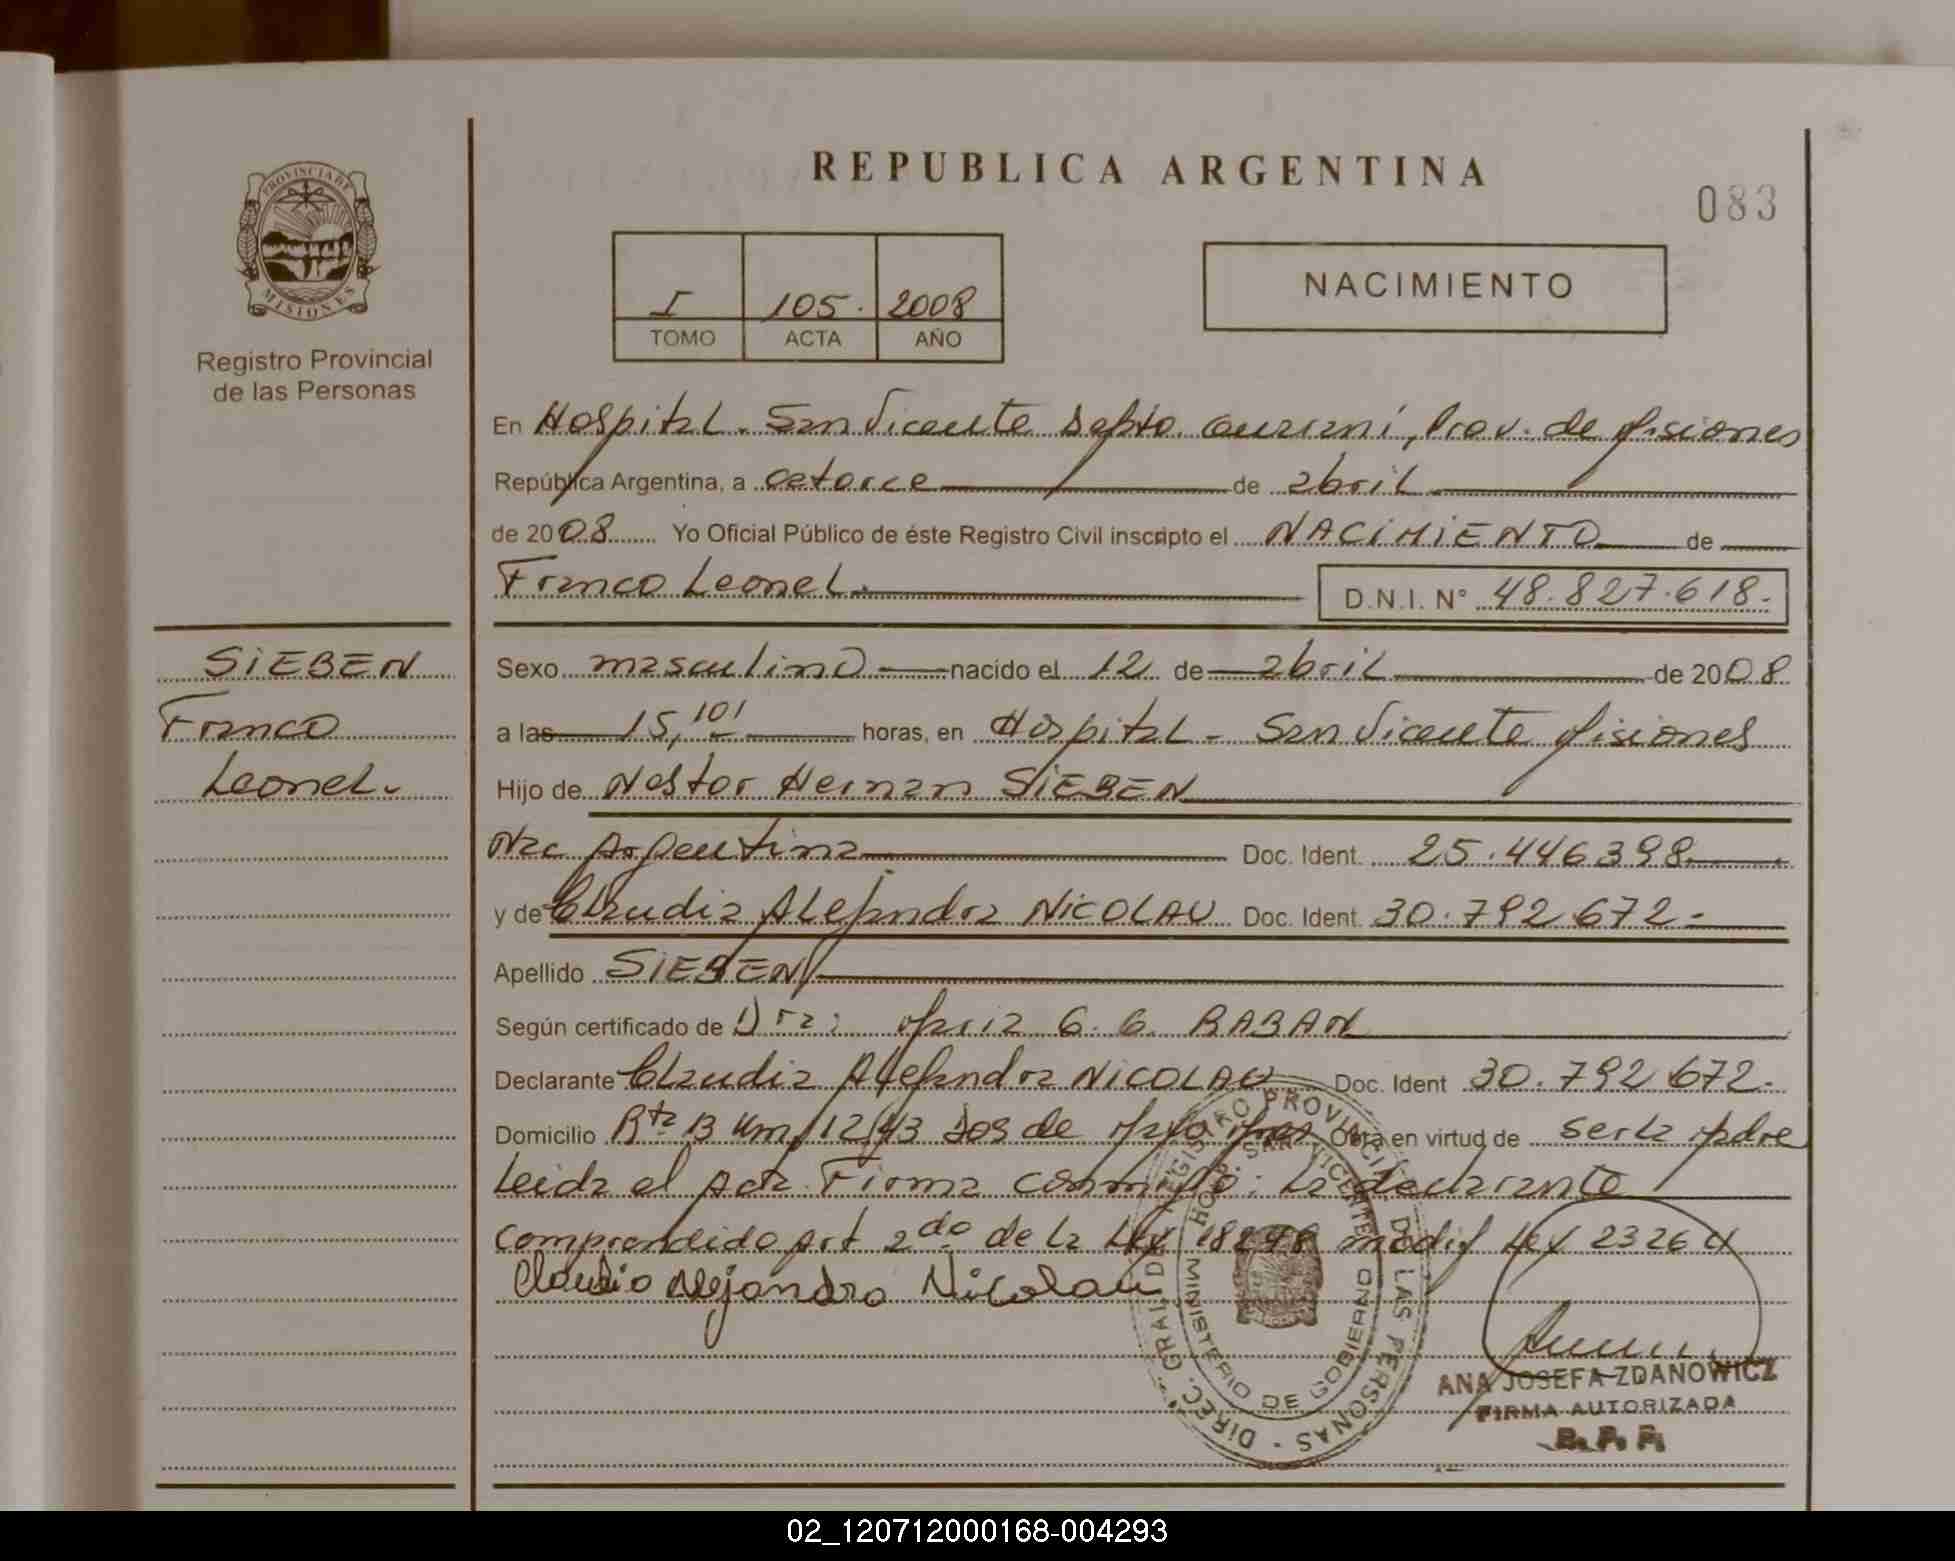 REPUBLICA ARGENTINA
083
PROVINCIA DE
MISIONES
Registro Provincial
de las Personas
I 105. 2008
TOMO ACTA AÑO
NACIMIENTO
En Hospital. San Vicente Depto. Guaraní, Prov. de Misiones
República Argentina, a catorce de abril
de 2008 Yo Oficial Público de éste Registro Civil inscripto el NACIMIENTO de
Franco Leonel. D.N.I. N° 48.827.618.
SIEBEN
Franco
Leonel.
Sexo masculino nacido el 12 de abril de 2008
a las 15,101 horas, en Hospital - San Vicente Misiones
Hijo de Nestor Hernan SIEBEN
Nac Argentina Doc. Ident. 25.446398
y de Claudia Alejandra NICOLAU Doc. Ident. 30.792.672.
Apellido SIEBEN
Según certificado de Dra: Maria G. G. RABAN
Declarante Claudia Alejandra NICOLAU Doc. Ident 30.792.672.
Domicilio Rta 13 Km, 12/43 Dos de Mayo Mnes Obra en virtud de ser la Madre
Leida el Acta. Firma conmigo: La declarante
comprendido Art 2do de la Ley 18248 modif Ley 23264
Claudia Alejandra Nicolau
DIREC. GRAL. DEL REGISTRO PROVINCIAL DE LAS PERSONAS
HOSP. SAN VICENTE
MINISTERIO DE GOBIERNO
ANA JOSEFA ZDANOWICZ
FIRMA AUTORIZADA
02_120712000168-004293